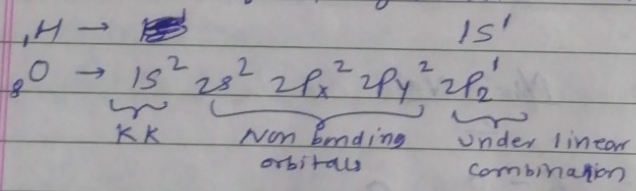 ₁H → 1s¹
₈O → 1s² 2s² 2Px² 2Py² 2Pz¹
KK Non bonding orbitals under linear combination